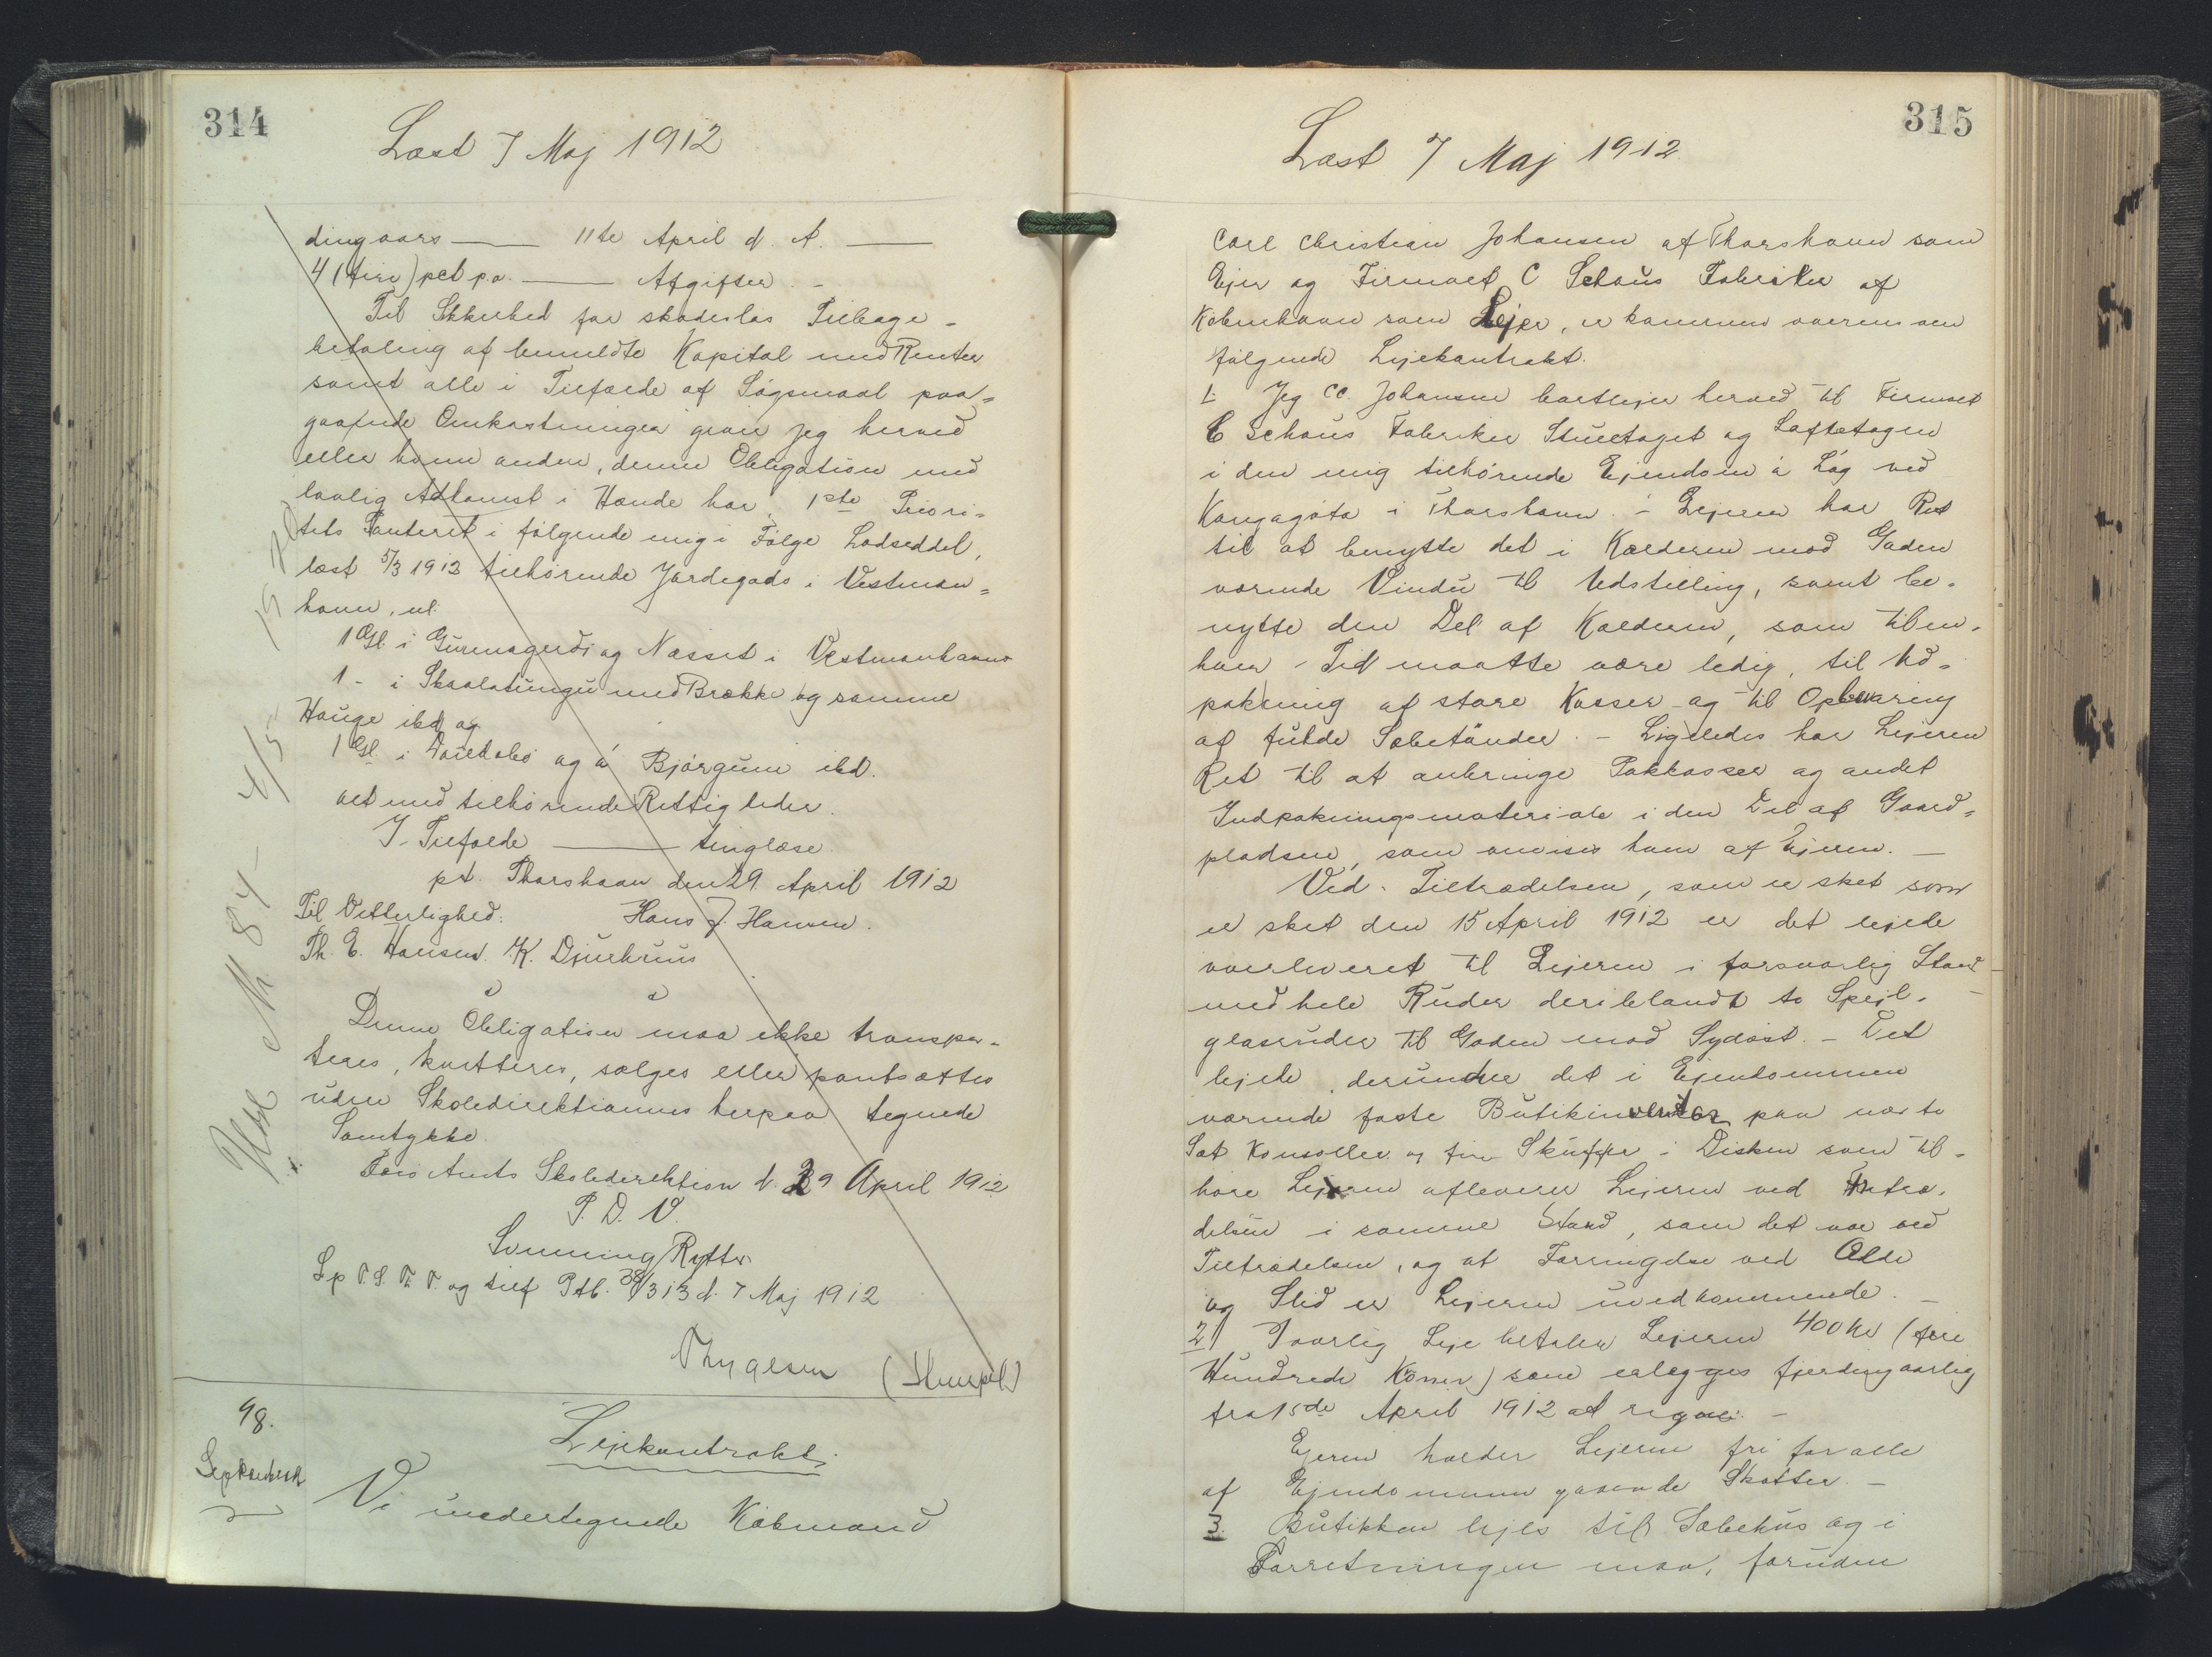 314
Læst 7 Maj 1912
dingaars —— 11te April d. A. ——
4 (fire) pct p.a. —— Afgifter. -
Til Sikkerhed for skadesløs Tilbage-
betaling af bemeldte Kapital med Renter
samt alle i Tilfælde af Søgsmaal paa-
gaaende Omkostninger giver jeg herved
eller hvem anden, denne Obligation med
lovlig Adkomst i Hænde har, 1ste Priori-
tets Panteret i følgende mig i Følge Lodseddel,
læst 5/3 1912 tilhørende Jordegods i Vestman-
havn, nl.
1 Gl. i Gurmagerdi og Næsset i Vestmanhavn
1 - i Skaalatungu med Brække og samme
Hauge ibd og
1 Gl. i og á Bjørgum ibd.
alt med tilhørende Rettigheder.
I Tilfælde —— tinglæse.
pt. Thorshavn den 29 April 1912
Til Vitterlighed: Hans J. Hansen.
Th. E. Hansen. K. Djurhuus
Denne Obligation maa ikke transpor-
teres, kvitteres, sælges eller pantsættes
uden Skoledirektionens herpaa tegnede
Samtykke.
Færø Amts Skoledirektion d. 29 April 1912
P. D. V.
Svenning Rytter
Lp T. S. Th. T. og tilf Ptb. 38/313 d. 7 Maj 1912
Thygesen (Stempel)
98.
Lejekontrakt.
Vi undertegnede Købmand
315
Læst 7 Maj 1912
Carl Christian Johansen af Thorshavn som
Ejer og Firmaet C Schous Fabriker af
København som Lejer, er kommen overens om
følgende Lejekontrakt.
1. Jeg CC. Johansen bortlejer herved til Firmaet
C Schous Fabriker Stueetaget og Loftetagen
i den mig tilhørende Ejendom á Løg ved
Kongagøta i Thorshavn. - Lejeren har Ret
til at benytte det i Kælderen mod Gaden
værende Vindu til Udstilling, samt be-
nytte den Del af Kælderen, som til en-
hver Tid maatte være ledig, til Ud-
pakning af store Kasser og til Opbevaring
af fulde Sæbetønder. - Ligeledes har Lejeren
Ret til at anbringe Pakkasser og andet
Indpakningsmateriale i den Del af Gaard-
pladsen, som anvises ham af Ejeren. —
Ved Tiltrædelsen, som er sket som
er sket den 15 April 1912 er det lejede
overleveret til Lejeren i forsvarlig Stand
med hele Ruder deriblandt to Spejl-
glasruder til Gaden mod Sydøst. - Det
lejede, derunder det i Ejendommen
værende faste Butikinventar paa nær to
Sæt Konsoller og fire Skuffer i Disken som til-
høre Lejeren afleverer Lejeren ved Fratræ-
delsen i samme Stand, som det var ved
Tiltrædelsen, og at Forringelse ved Ælde
og Slid er Lejeren uvedkommende. —
2) I aarlig Leje betaler Lejeren 400 Kr (fire
Hundrede Kroner) som erlægges fjerdingaarlig
fra 15de April 1912 at regne. -
Ejeren holder Lejeren fri for alle
af Ejendommen gaaende Skatter. -
3. Butikken lejes til Sæbehus og i
Forretningen maa, foruden